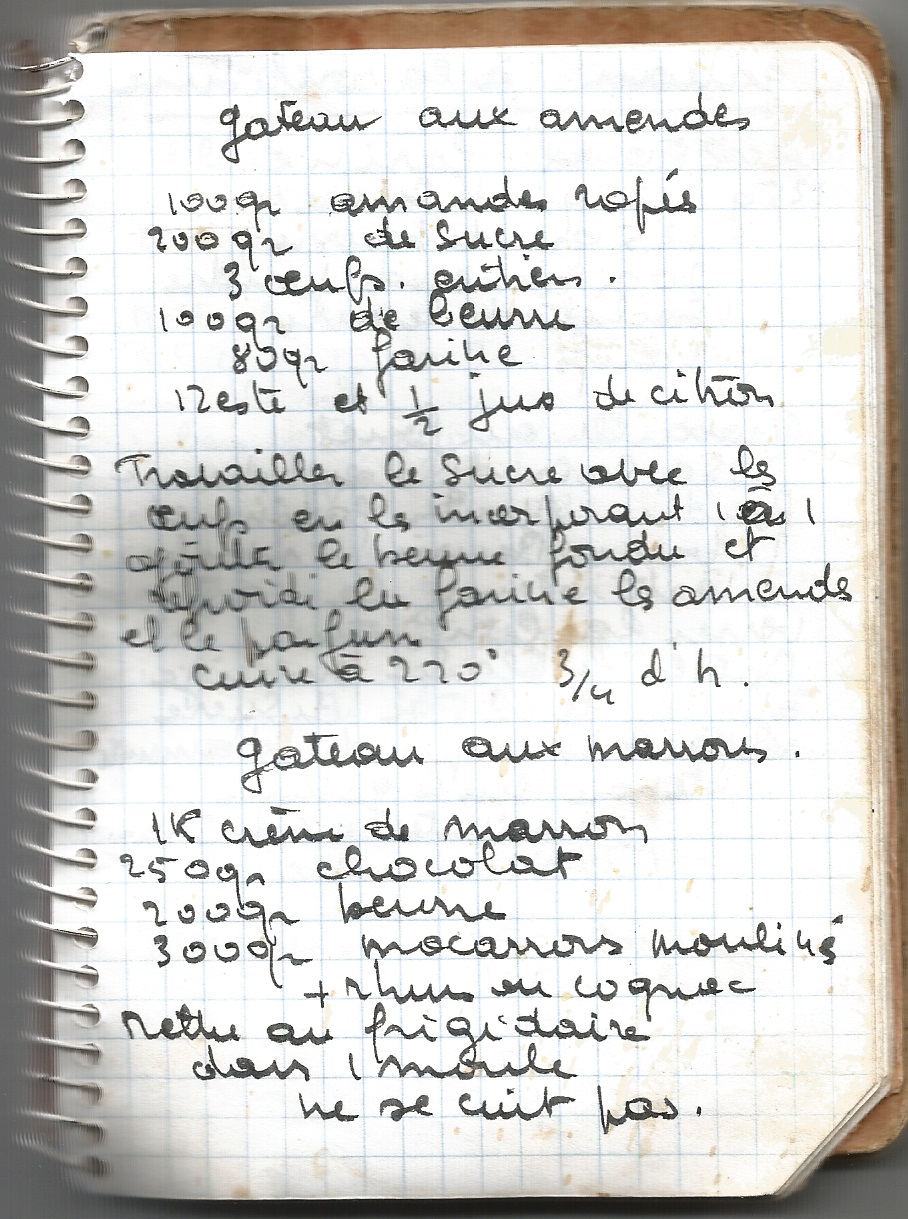 gateau aux amendes
100gr amandes rapés
200gr de sucre
3 œufs. entiers.
100gr de beurre
80gr farine
1 Zeste et 1/2 jus de citron
Travailler le sucre avec les
œufs en les incorporant 1 à 1
ajouter le beurre fondu et
refroidi la farine les amendes
et le parfum
Cuire à 220° 3/4 d'h.
gateau aux marrons.
1K crème de marron
250gr chocolat
200gr beurre
300gr macarrons moulinés
+ rhum ou cognac
Mettre au frigidaire
dans 1 moule
ne se cuit pas.